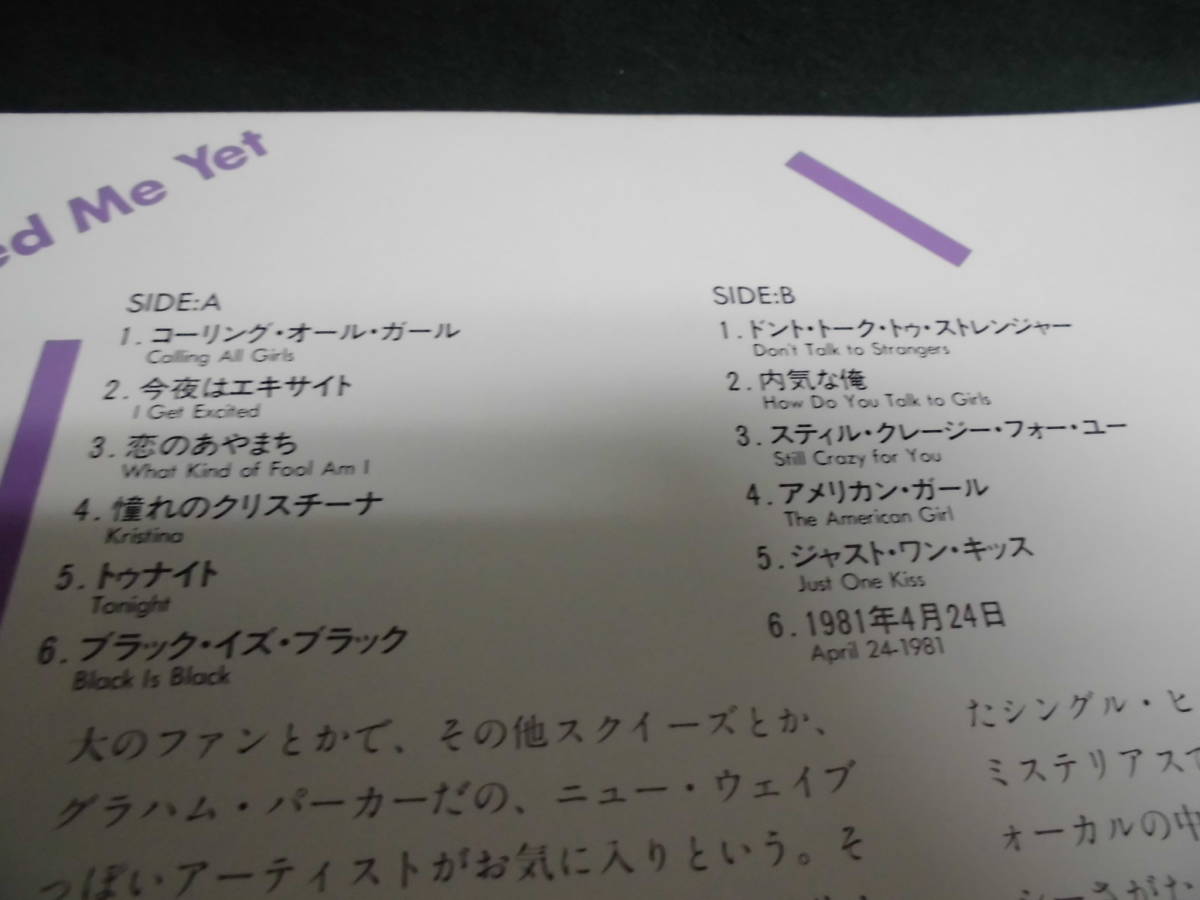 ed Me Yet
SIDE:A
1. コーリング・オール・ガール
Calling All Girls
2. 今夜はエキサイト
I Get Excited
3. 恋のあやまち
What Kind of Fool Am I
4. 憧れのクリスチーナ
Kristina
5. トゥナイト
Tonight
6. ブラック・イズ・ブラック
Black Is Black
SIDE:B
1. ドント・トーク・トゥ・ストレンジャー
Don't Talk to Strangers
2. 内気な俺
How Do You Talk to Girls
3. スティル・クレージー・フォー・ユー
Still Crazy for You
4. アメリカン・ガール
The American Girl
5. ジャスト・ワン・キッス
Just One Kiss
6. 1981年4月24日
April 24-1981
大のファンとかで、その他スクイーズとか、
グラハム・パーカーだの、ニュー・ウェイブ
っぽいアーティストがお気に入りという。そ
たシングル・ヒ
ミステリアスで
ォーカルの中